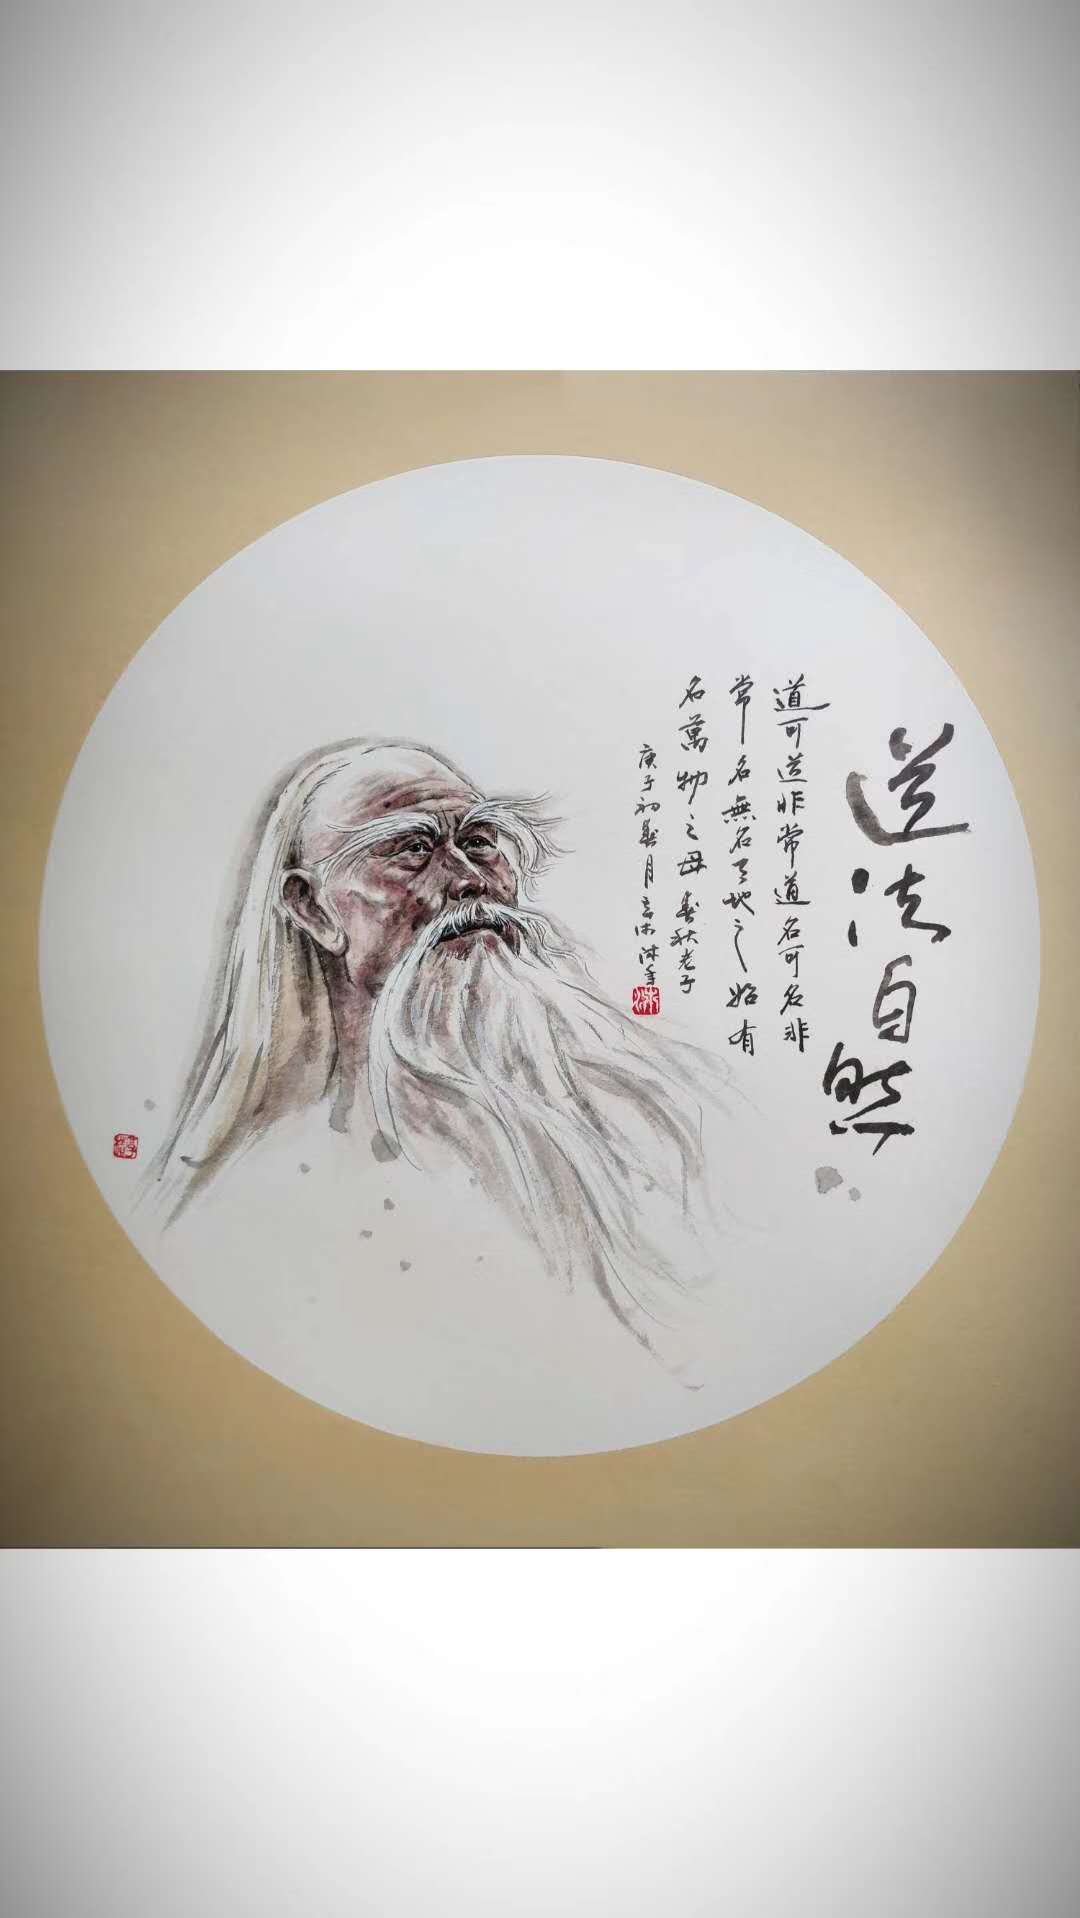 道法自然
道可道非常道名可名非
常名無名天地之始有
名萬物之母 春秋老子
庚子初春月